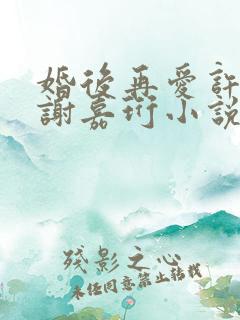 婚後再愛許
謝嘉珩小說
殘影之心
未经同意禁止转载